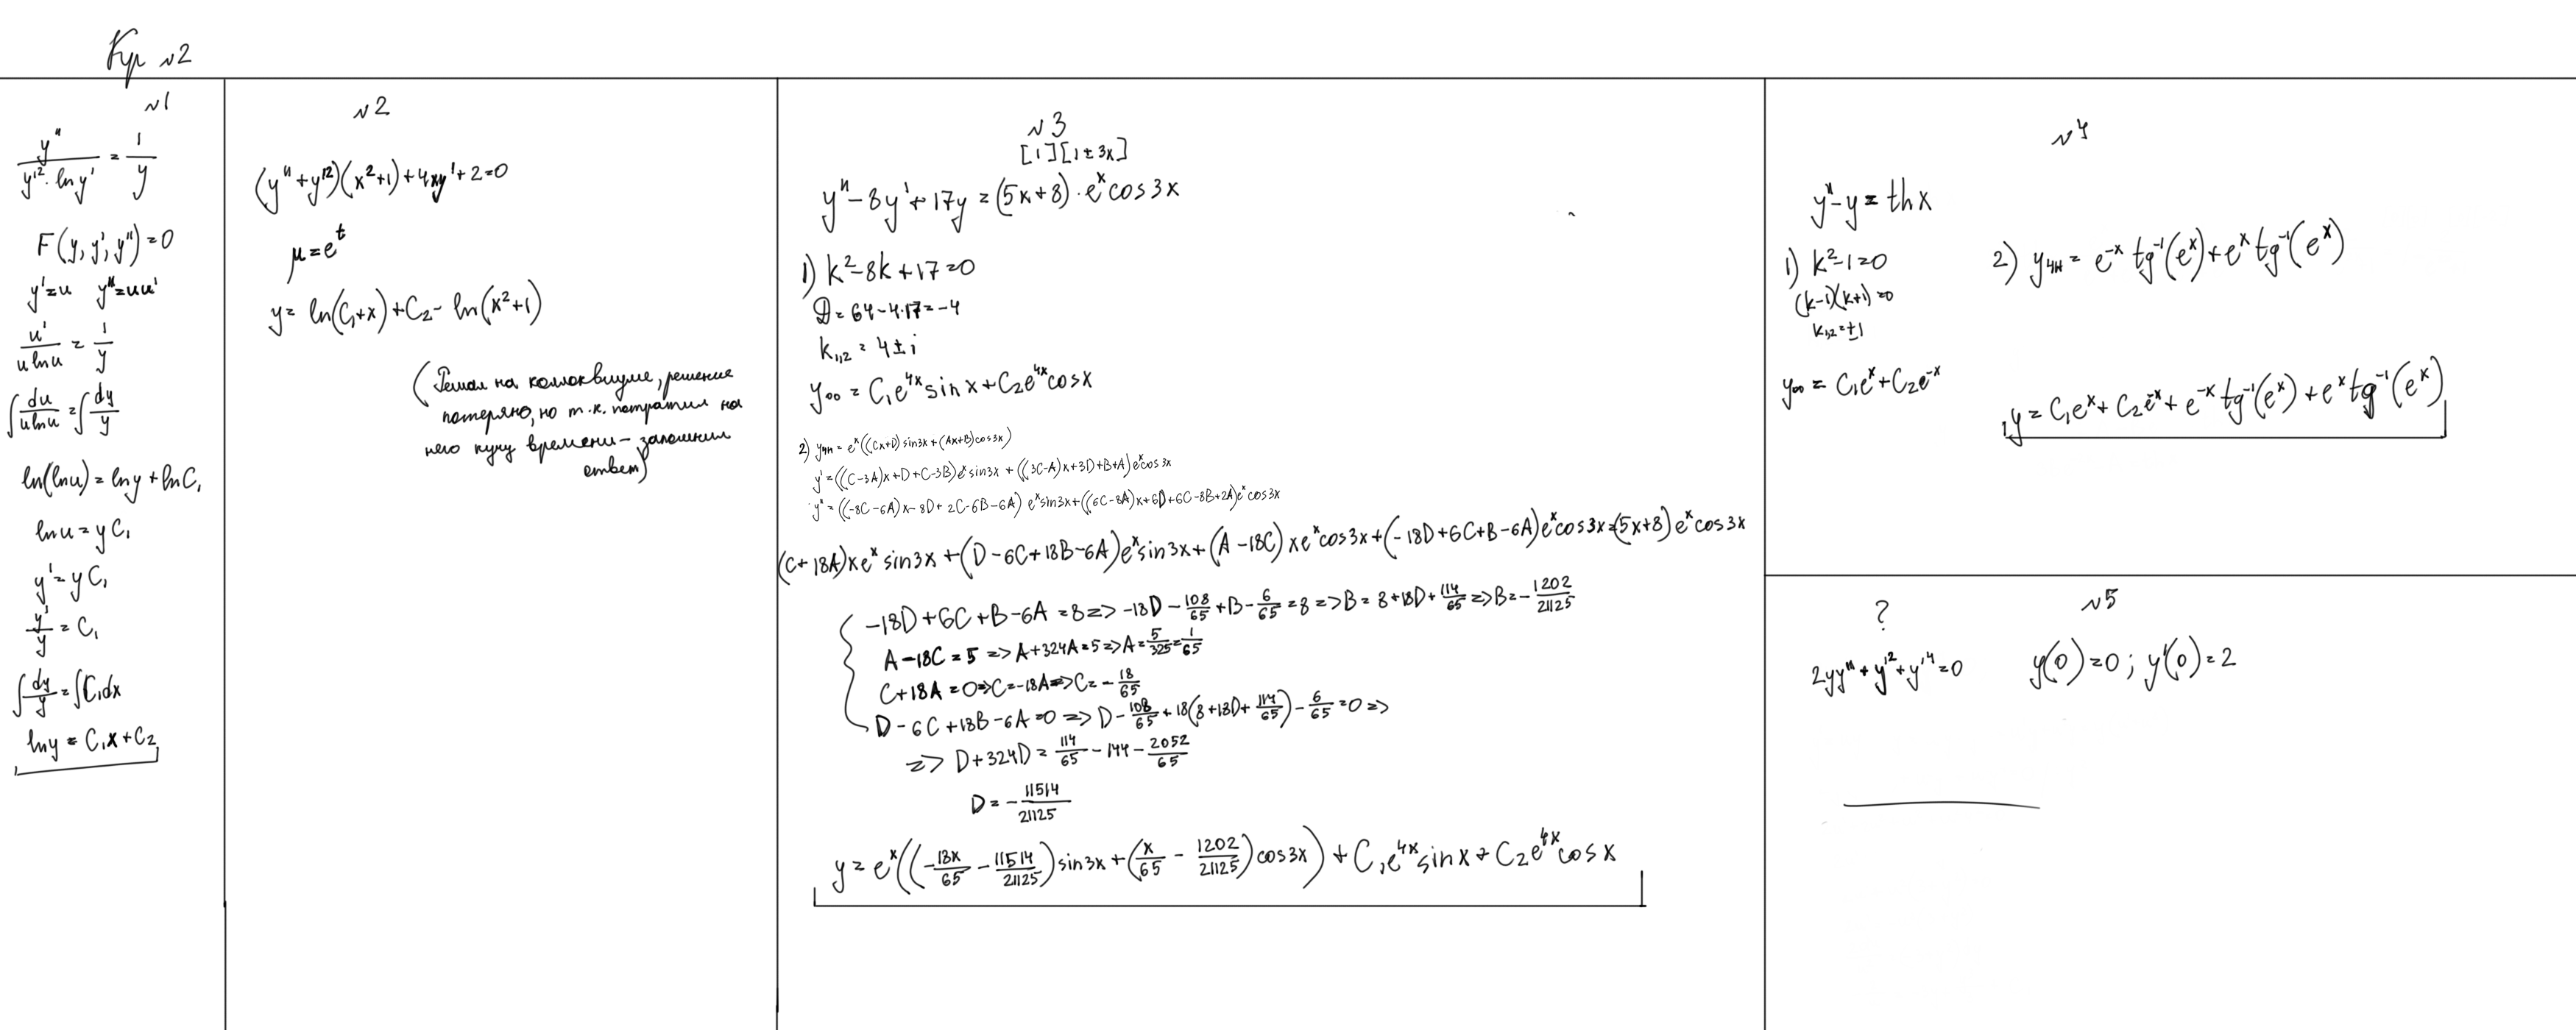 Кр №2
№1
y''/(y'²·ln y') = 1/y
F(y, y', y'') = 0
y'=u y''=uu'
u'/(u ln u) = 1/y
∫du/(u ln u) = ∫dy/y
ln(ln u) = ln y + ln C₁
ln u = yC₁
y' = yC₁
y'/y = C₁
∫dy/y = ∫C₁dx
ln y = C₁x + C₂
№2
(y'' + y'²)(x²+1) + 4xy' + 2 = 0
μ = e^t
y = ln(C₁+x) + C₂ - ln(x²+1)
(Решал на коллоквиуме, решение
потеряно, но т.к. потратил на
него кучу времени - запомнил
ответ)
№3
[1][1±3x]
y'' - 8y' + 17y = (5x+8)·e^x cos3x
1) k² - 8k + 17 = 0
D = 64 - 4·17 = -4
k₁,₂ = 4 ± i
y₀₀ = C₁e^4x sin x + C₂e^4x cos x
2) yчн = e^x((Cx+D) sin3x + (Ax+B) cos3x)
y' = ((C-3A)x + D + C - 3B) e^x sin3x + ((3C-A)x + 3D + B + A) e^x cos3x
y'' = ((-8C-6A)x - 8D + 2C - 6B - 6A) e^x sin3x + ((6C-8A)x + 6D + 6C - 8B + 2A) e^x cos3x
(C+18A)xe^x sin3x + (D-6C+18B-6A)e^x sin3x + (A-18C)xe^x cos3x + (-18D+6C+B-6A)e^x cos3x = (5x+8)e^x cos3x
-18D + 6C + B - 6A = 8 => -18D - 108/65 + B - 6/65 = 8 => B = 8 + 18D + 114/65 => B = -1202/21125
A - 18C = 5 => A + 324A = 5 => A = 5/325 = 1/65
C + 18A = 0 => C = -18A => C = -18/65
D - 6C + 18B - 6A = 0 => D - 108/65 + 18(8 + 18D + 114/65) - 6/65 = 0 =>
=> D + 324D = 114/65 - 144 - 2052/65
D = -11514/21125
y = e^x((-18x/65 - 11514/21125) sin3x + (x/65 - 1202/21125) cos3x) + C₁e^4x sin x + C₂e^4x cos x
№4
y'' - y = th x
1) k² - 1 = 0
(k-1)(k+1) = 0
k₁,₂ = ±1
y₀₀ = C₁e^x + C₂e^-x
2) yчн = e^-x tg⁻¹(e^x) + e^x tg⁻¹(e^x)
y = C₁e^x + C₂e^-x + e^-x tg⁻¹(e^x) + e^x tg⁻¹(e^x)
№5
?
2yy'' + y'² + y'⁴ = 0 y(0) = 0; y'(0) = 2